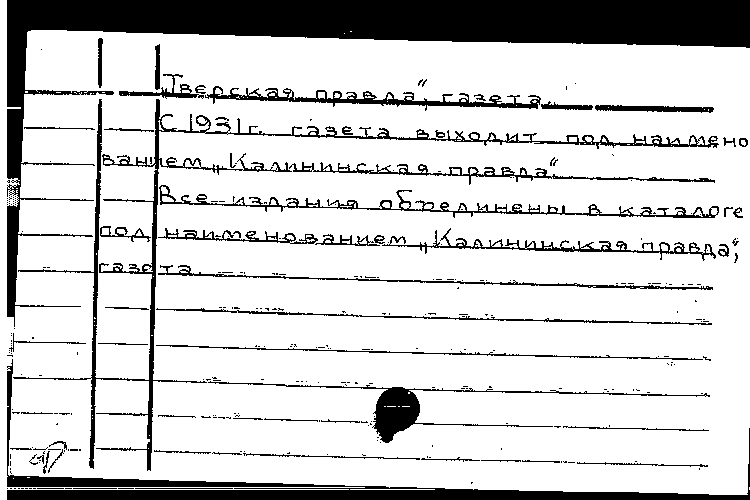 „Тверская правда“, газета.
С 1931 г. газета выходит под наимено
ванием „Калининская правда“.
Все издания объединены в каталоге
под наименованием „Калининская правда“,
газета.